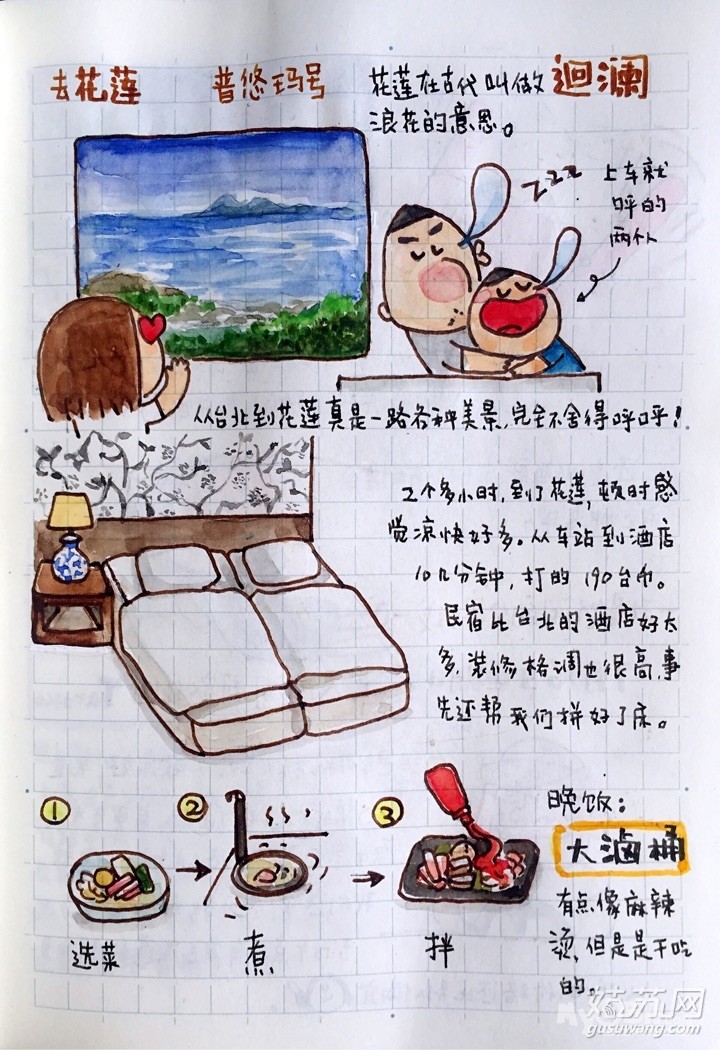 去花莲
普悠玛号
花莲在古代叫做迴澜
浪花的意思。
zzz
上车就
呼的
两个人
从台北到花莲真是一路各种美景,完全不舍得呼呼!
2个多小时,到了花莲,顿时感
觉凉快好多。从车站到酒店
10几分钟,打的190台币。
民宿比台北的酒店好太
多,装修格调也很高,事
先还帮我们拼好了床。
①
②
③
选菜
煮
拌
晚饭:
大滷桶
有点像麻辣
烫,但是是干吃
的。
姑苏网
gusuwang.com